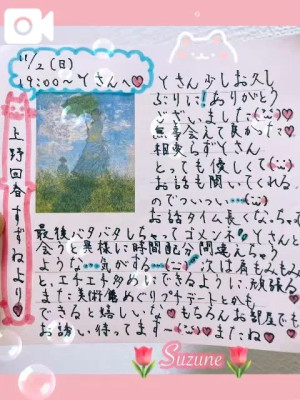 11/2(日)
19:00〜Yさんへ
上野回春すずねより
Yさん少しお久し
ぶりに!ありがとう
ございました(:)
無事会えて良かった
相変らずYさん
とっても優しくて(:)
お話も聞いてくれる
のでついつい…
お話タイム長くなっちゃ
最後バタバタしちゃってゴメンネ!Yさんと
会うと異様に時間配分間違えちゃう
ような…気がする…(:)次は肩もみもみ
と、エチエチ多めにできるように、頑張る
また美術館めぐりプチデートとかも
できると嬉しいな もちろんお部屋でも
お誘い待ってますー(:)またね
Suzune